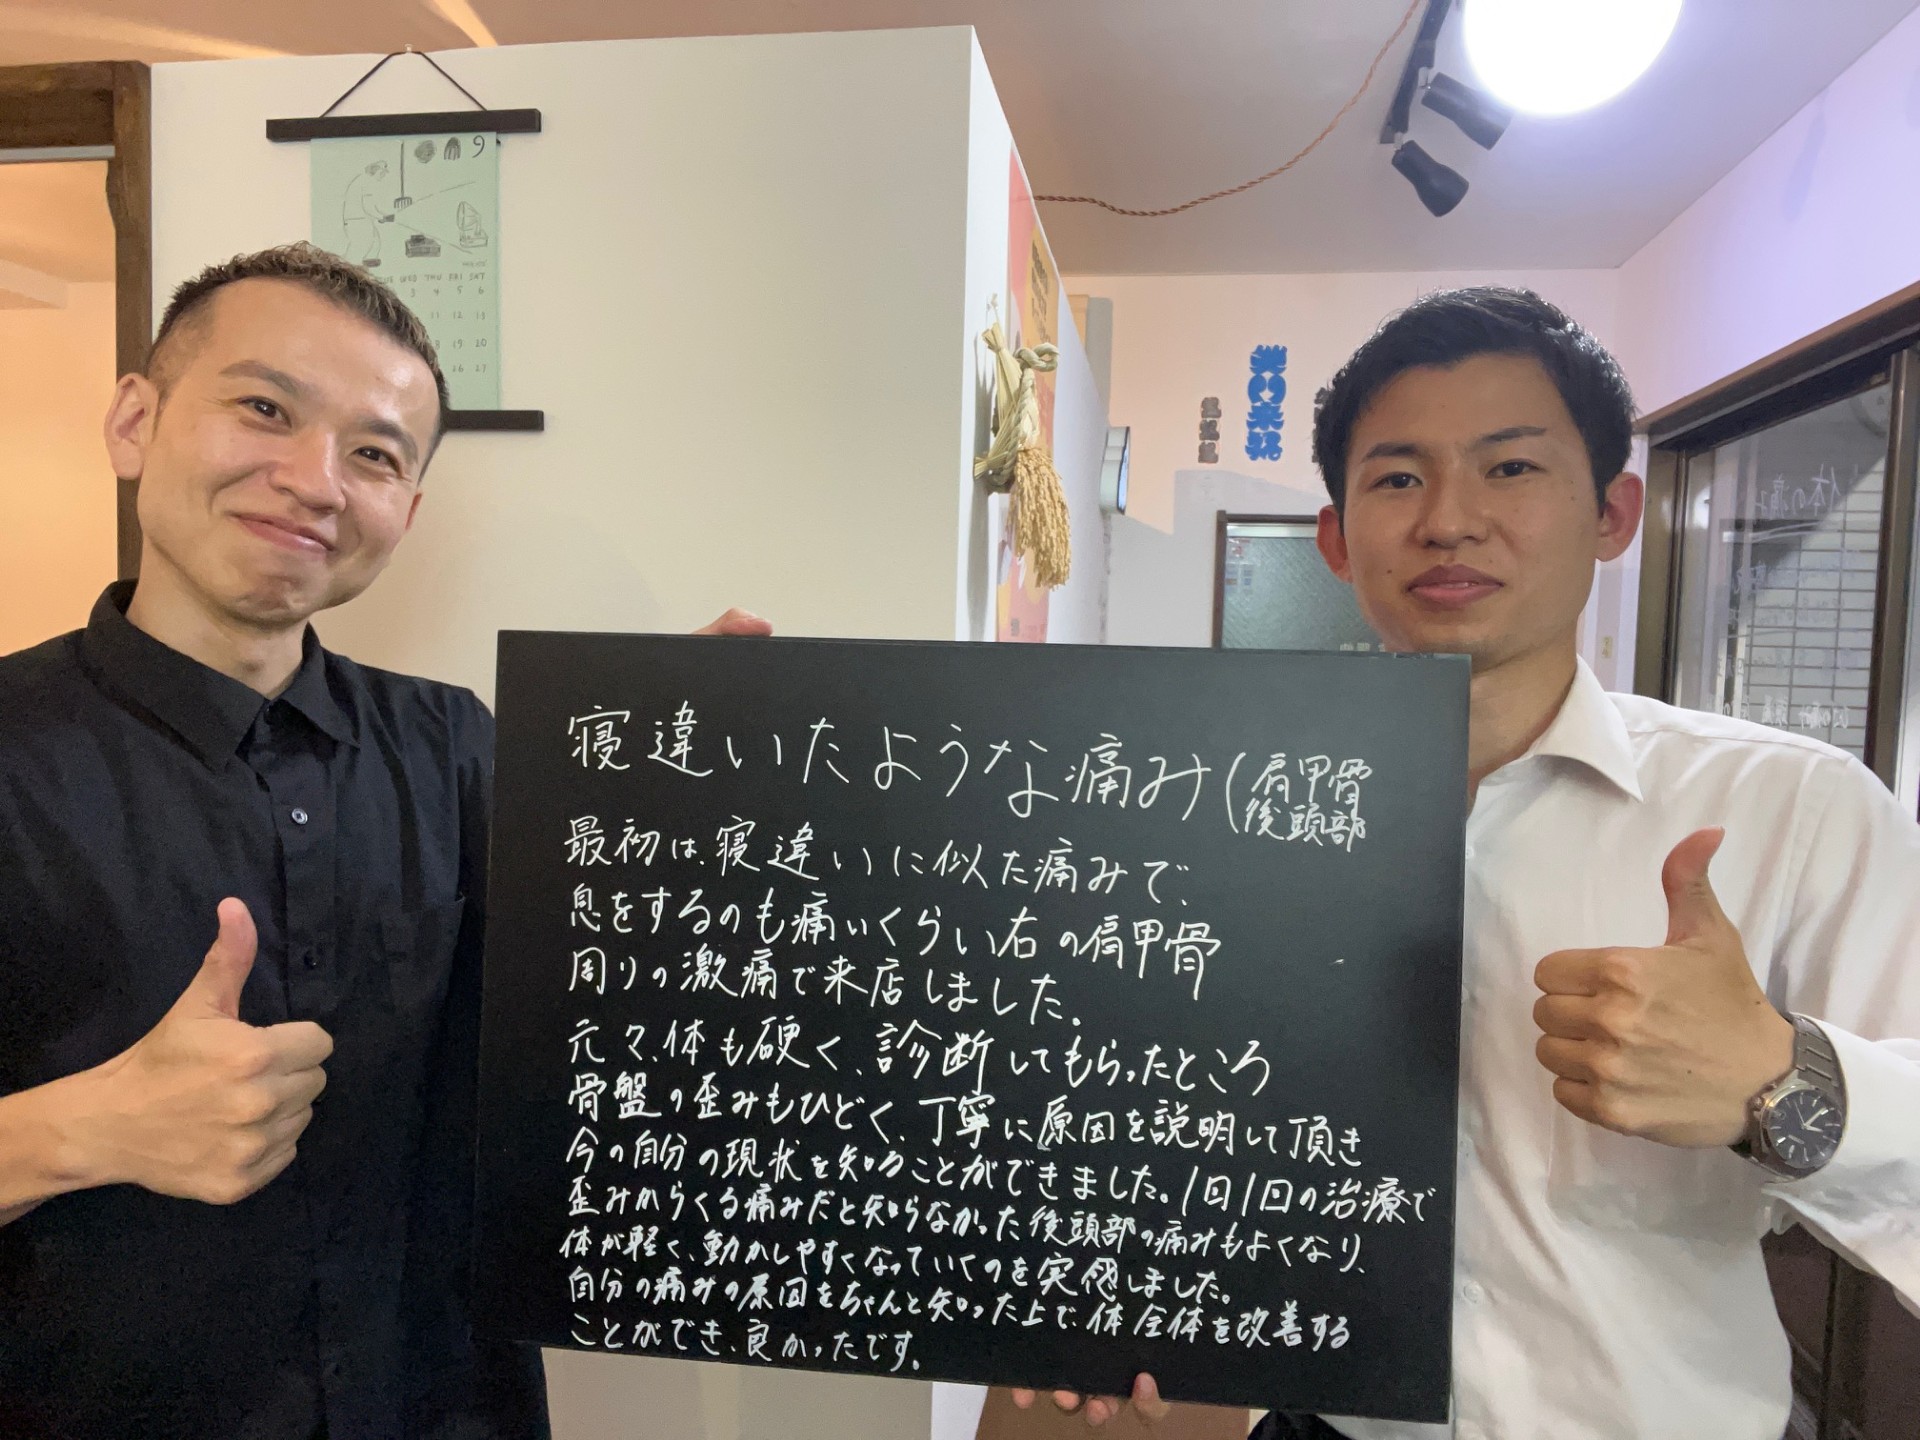 9
WED THU FRI SAT
3 4 5 6
11 12 13
19 20
26 27
寝違いたような痛み(肩甲骨
後頭部
最初は、寝違いに似た痛みで、
息をするのも痛いくらい右の肩甲骨
周りの激痛で来店しました。
元々、体も硬く、診断してもらったところ
骨盤の歪みもひどく、丁寧に原因を説明して頂き
今の自分の現状を知ることができました。1回1回の治療で
歪みからくる痛みだと知らなかった後頭部の痛みもよくなり、
体が軽く、動かしやすくなっていくのを実感しました。
自分の痛みの原因をちゃんと知った上で、体全体を改善する
ことができ、良かったです。